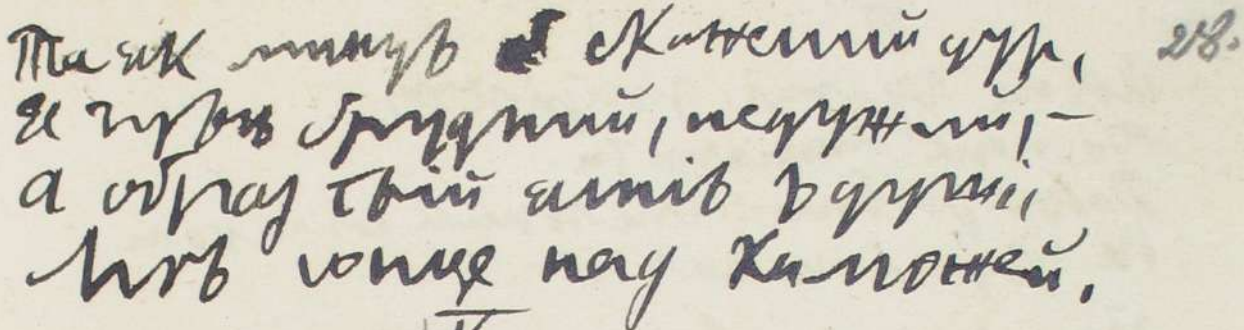 Та як минув скажений дур, 28.
Я чувсь брудний, недужий, –
А образ твій яснів в души,
Мов сонце над калюжей.